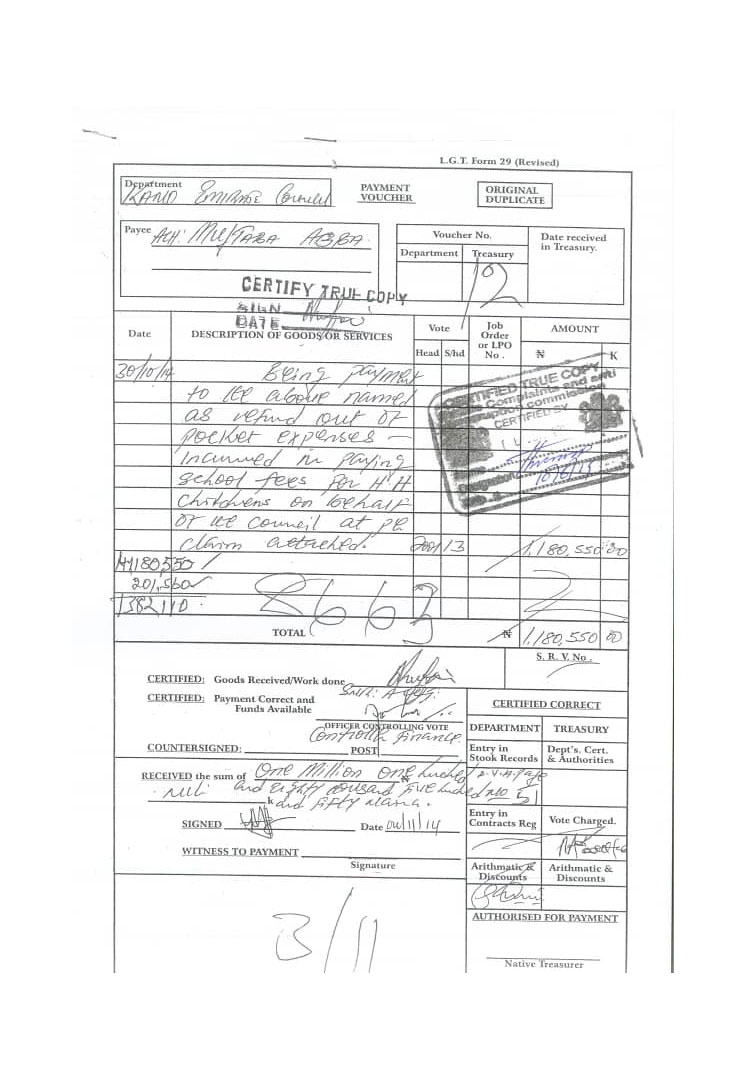 L.G.T. Form 29 (Revised)
Department KANO Emirate Council
PAYMENT VOUCHER
ORIGINAL
DUPLICATE
Payee ALH:
Voucher No.
Department Treasury
12
Date received in Treasury.
CERTIFY TRUE COPY
SIGN
DATE
Date
DESCRIPTION OF GOODS/OR SERVICES
Vote
Head S/hd
Job Order or LPO No.
AMOUNT
₦ K
30/10/14 Being payment
to the above named
as refund out of
pocket expenses –
Incurred in paying
school fees for H.H
Childrens on behalf
of the council at
claim attached. 2001/13 1,180,550 00
CERTIFIED TRUE COPY
Complaints and anti
commission
CERTIFIED BY
1,180,550
201,560
1382110
8663
TOTAL ₦ 1,180,550 00
S. R. V. No.
CERTIFIED: Goods Received/Work done
CERTIFIED: Payment Correct and
Funds Available
OFFICER CONTROLLING VOTE
Controller Finance
COUNTERSIGNED: POST
CERTIFIED CORRECT
DEPARTMENT TREASURY
Entry in Stook Records
Dept's. Cert. & Authorities
RECEIVED the sum of One Million One hundred
and Eighty thousand Five hundred
k and Fifty Naira.
SIGNED Date 04/11/14
Entry in Contracts Reg
Vote Charged.
WITNESS TO PAYMENT
Signature
Arithmatic & Discounts
Arithmatic & Discounts
AUTHORISED FOR PAYMENT
3/11
Native Treasurer